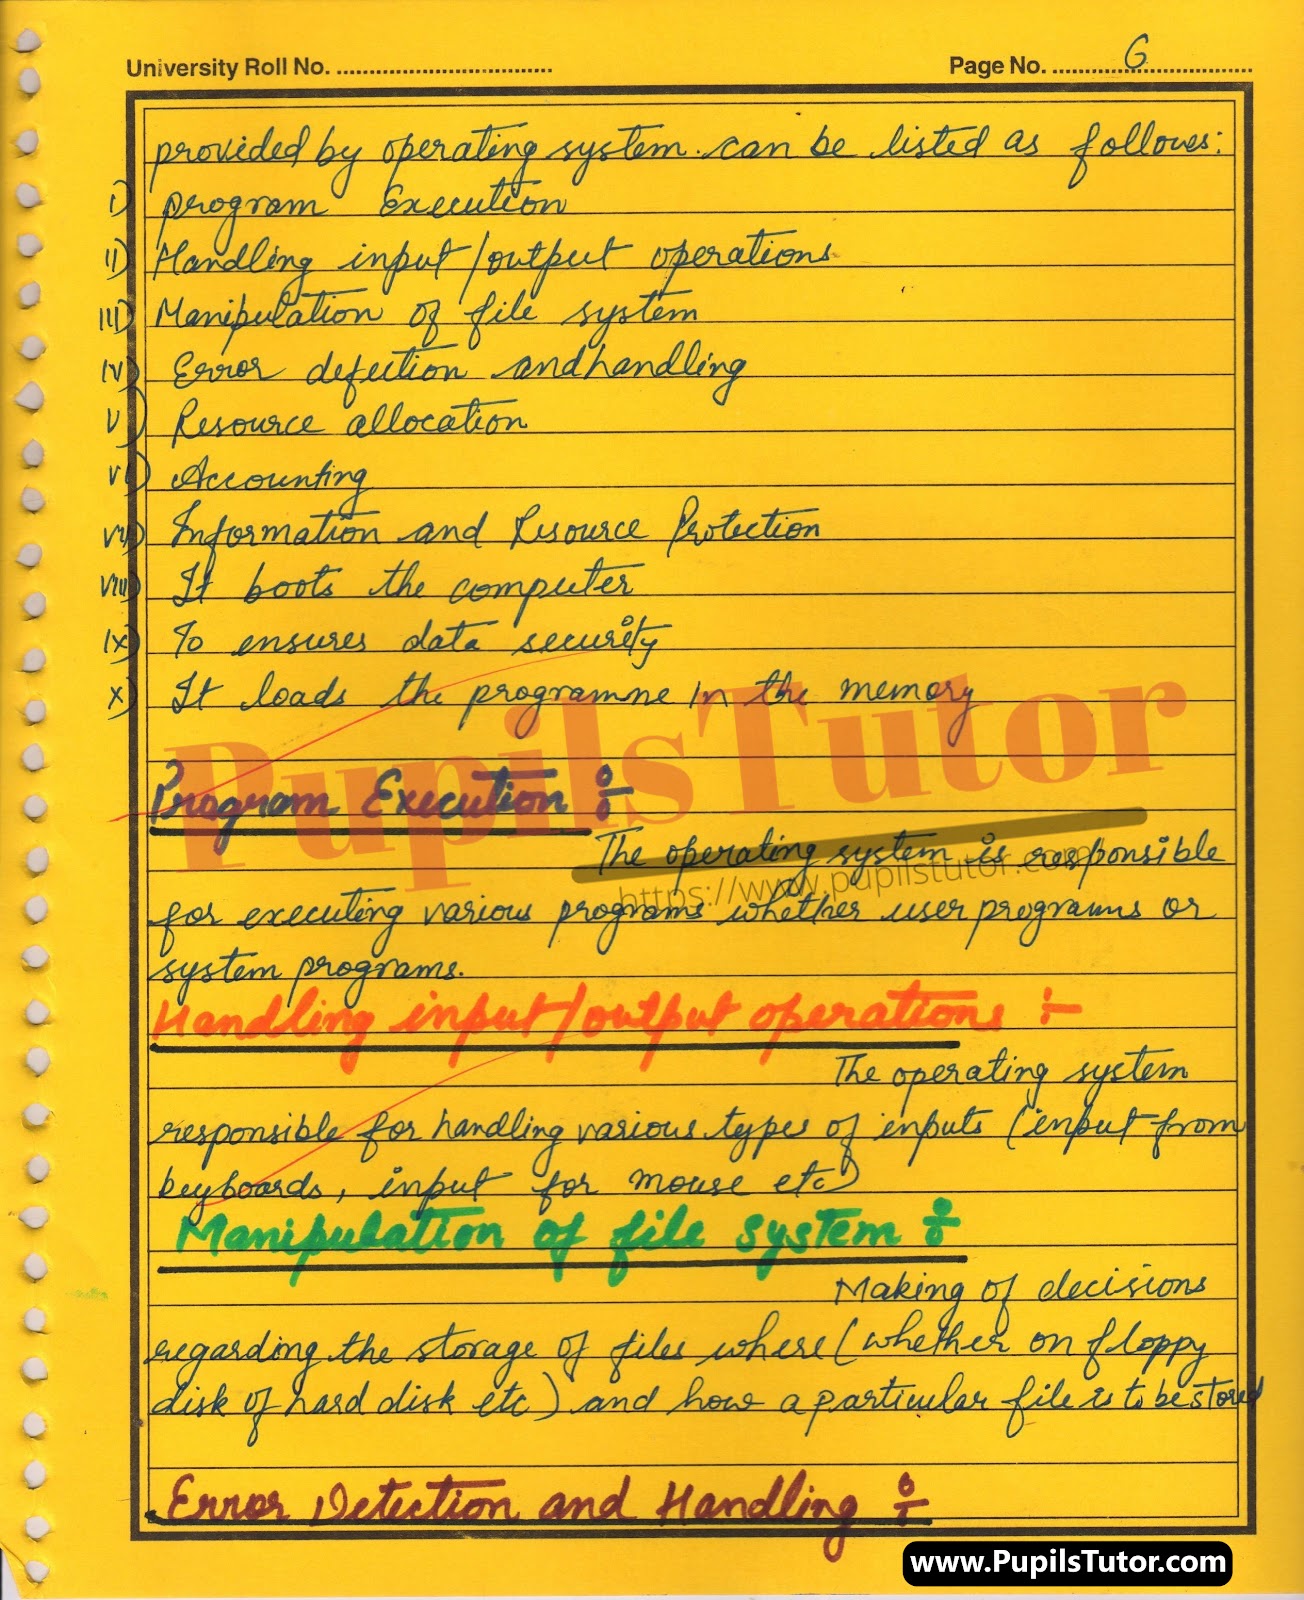 University Roll No. ................................. Page No. ...............................
6
provided by operating system can be listed as follows:
i) program Execution
II) Handling input/output operations
III) Manipulation of file system
IV) Error defection and handling
V) Resource allocation
VI) Accounting
VII) Information and Resource Protection
VIII) It boots the computer
IX) To ensures data security
X) It loads the programme in the memory
PupilsTutor
Program Execution :-
The operating system is responsible
https://www.pupilstutor.com
for executing various programs whether user programs or
system programs.
Handling input/output operations :-
The operating system
responsible for handling various types of inputs (input from
keyboards, input for mouse etc)
Manipulation of file system :-
Making of decisions
regarding the storage of files where (whether on floppy
disk of hard disk etc) and how a particular file is to be stored
Error Detection and Handling :-
www.PupilsTutor.com